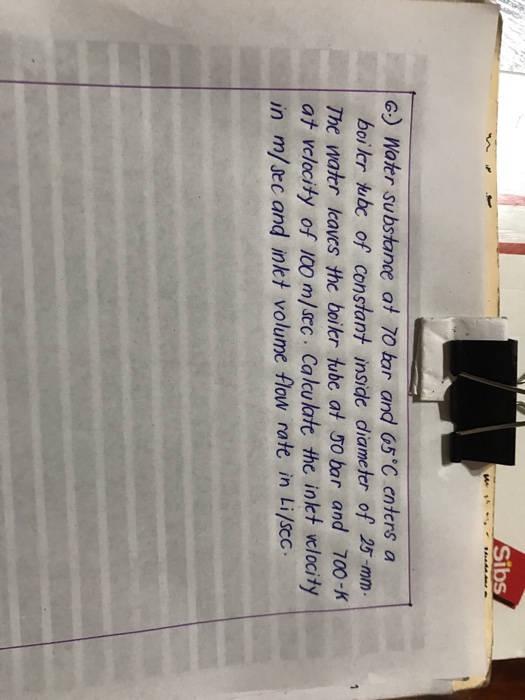 6.) Water substance at 70 bar and 65°C enters a
boiler tube of constant inside diameter of 25-mm.
The water leaves the boiler tube at 50 bar and 700-K
at velocity of 100 m/sec. Calculate the inlet velocity
in m/sec and inlet volume flow rate in Li/sec.
Sibs